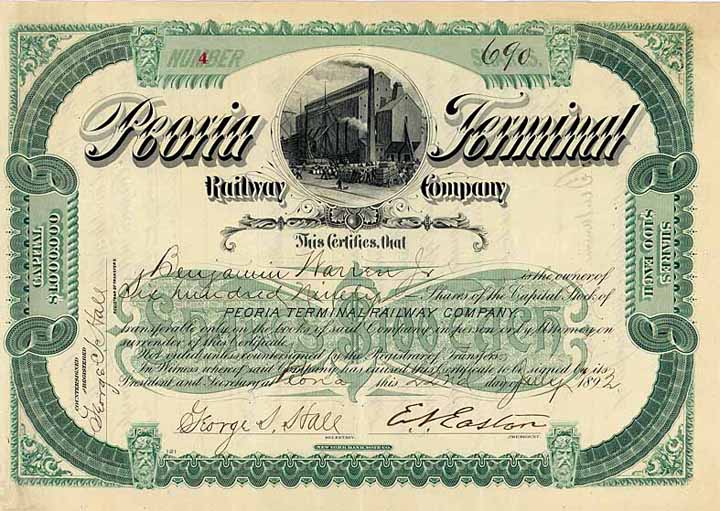 NUMBER 4 690 SHARES.
Peoria Terminal
Railway Company
This Certifies, that
Benjamin Warren Jr is the owner of
Six hundred ninety Shares of the Capital Stock of
PEORIA TERMINAL RAILWAY COMPANY.
transferable only on the books of said Company in person or by Attorney on
surrender of this Certificate.
Not valid unless countersigned by the Registrar of Transfers.
In Witness whereof said Company has caused this Certificate to be signed by its
President and Secretary at Peoria this 22nd day of July 1892
George S. Hall
SECRETARY.
PRESIDENT.
NEW YORK BANK NOTE CO.
121
CAPITAL
$1,000,000
SHARES
$100 EACH
COUNTERSIGNED
& REGISTERED
REGISTRAR OF TRANSFERS.
Shares $100 Each